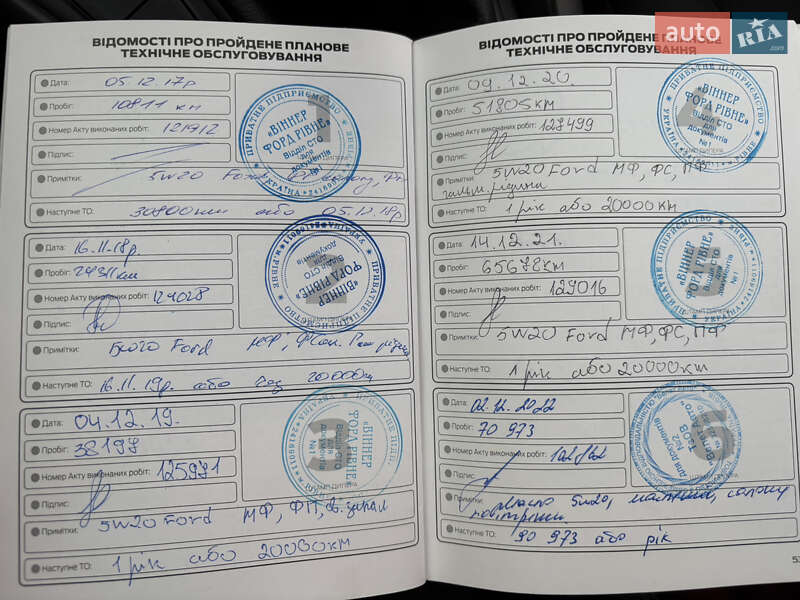 ВІДОМОСТІ ПРО ПРОЙДЕНЕ ПЛАНОВЕ
ТЕХНІЧНЕ ОБСЛУГОВУВАННЯ
Дата: 05.12.17р
Пробіг: 10811 км
Номер Акту виконаних робіт: 121912
Підпис:
Примітки: 5W20
Наступне ТО: 30800км або 05.12.18р
ПРИВАТНЕ ПІДПРИЄМСТВО
"ВІННЕР
ФОРД РІВНЕ"
Відділ СТО
для
документів
№1
УКРАЇНА
Дата: 16.11.18р.
Пробіг:
Номер Акту виконаних робіт: 124028
Підпис:
Примітки: Ford
Наступне ТО: 16.11.19р. або
"ВІННЕР
ФОРД РІВНЕ"
Відділ СТО
для
документів
Дата: 04.12.19.
Пробіг: 38197
Номер Акту виконаних робіт: 125971
Підпис:
Примітки: 5W20 Ford МФ, ФП,
Наступне ТО: 1 рік або 20000км
"ВІННЕР
ФОРД РІВНЕ"
Відділ СТО
для
документів
№1
ВІДОМОСТІ ПРО ПРОЙДЕНЕ ПЛАНОВЕ
ТЕХНІЧНЕ ОБСЛУГОВУВАННЯ
Дата: 09.12.20.
Пробіг: 51805км
Номер Акту виконаних робіт: 127499
Підпис:
Примітки: 5W20 Ford МФ, ФС, ПФ
гальм. рідина
Наступне ТО: 1 рік або 20000км
ПРИВАТНЕ ПІДПРИЄМСТВО
"ВІННЕР
ФОРД РІВНЕ"
Відділ СТО
для
документів
№1
УКРАЇНА
Дата: 14.12.21.
Пробіг: 65678км
Номер Акту виконаних робіт: 129016
Підпис:
Примітки: 5W20 Ford МФ, ФС, ПФ
Наступне ТО: 1 рік або 20000км
"ВІННЕР
ФОРД РІВНЕ"
Відділ СТО
для
документів
№1
Дата: 02.12.2022
Пробіг: 70 973
Номер Акту виконаних робіт:
Підпис:
Примітки: масло 5w20,
Наступне ТО: 90 973 або рік
auto RIA.com